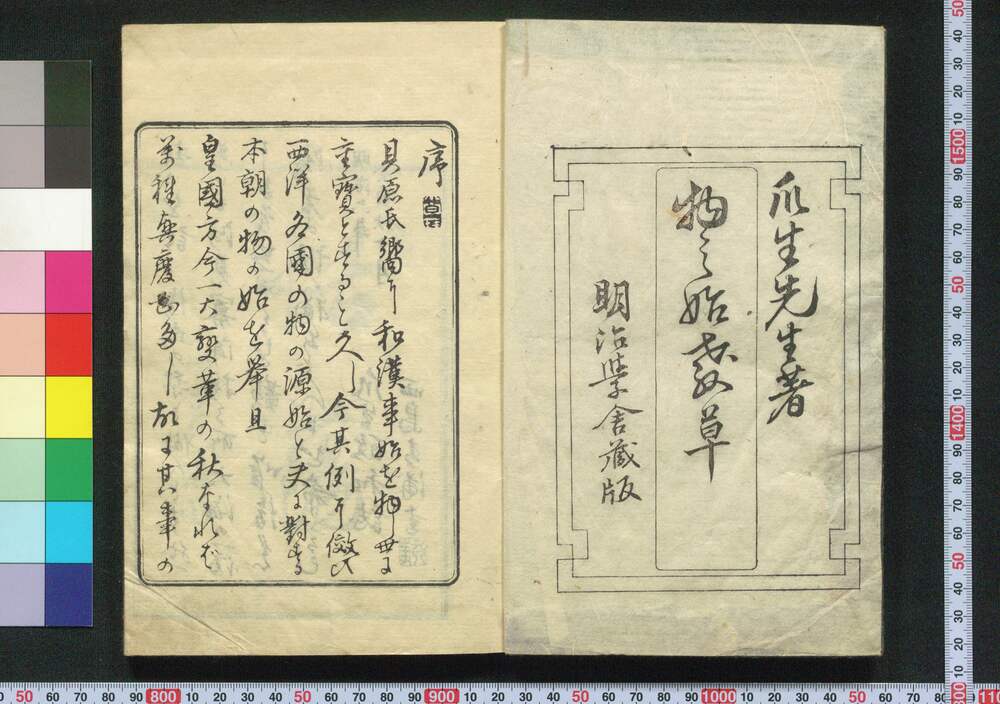 爪生先生著
物之始教草
明治學舎藏版
序
貝原氏嚮ニ和漢事始を物し世に
重寶とすること久し今其例ニ傚ひ
西洋各國の物の源始と夫に對する
本朝の物の始を擧且
皇國方今一大變革の秋なれば
萬種興廢
多し故に其事の
50 60 70 80 90 800 10 20 30 40 50 60 70 80 90 900 10 20 30 40 50 60 70 80 90 1000 10 20 30 40 50 60 70 80 90
50 40 30 20 10 1500 90 80 70 60 50 40 30 20 10 1400 90 80 70 60 50 40 30 20 10